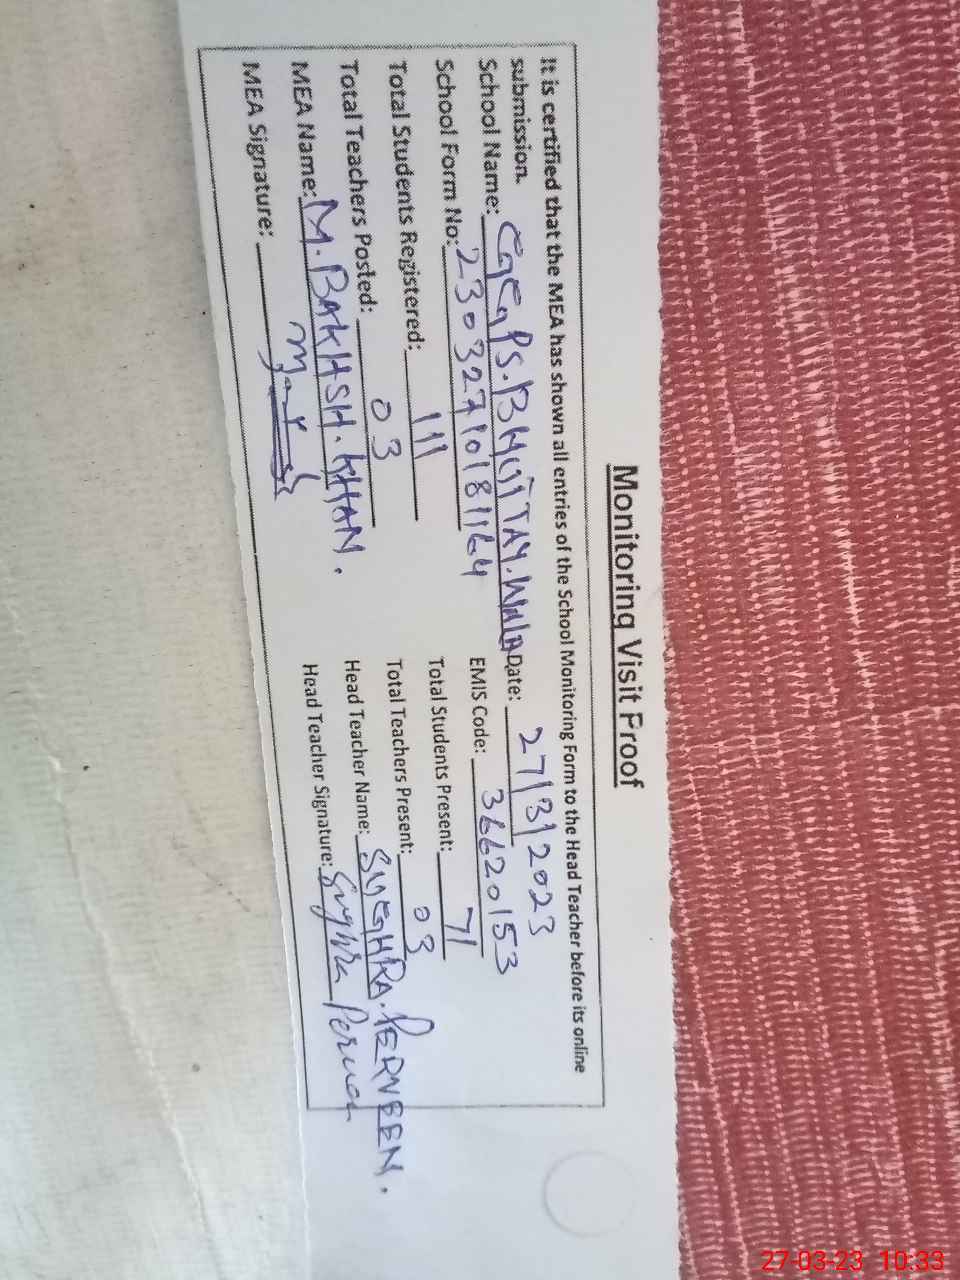 Monitoring Visit Proof
It is certified that the MEA has shown all entries of the School Monitoring Form to the Head Teacher before its online
submission.
School Name: GGPS. BHUTTAY. WALA Date: 27/3/2023
School Form No: 23032710181164 EMIS Code: 36620153
Total Students Registered: 111 Total Students Present: 71
Total Teachers Posted: 03 Total Teachers Present: 03
MEA Name: M. BAKHSH. KHAN. Head Teacher Name: SUGHRA. PERVEEN.
MEA Signature: Head Teacher Signature: Sughra
27-03-23 10:33